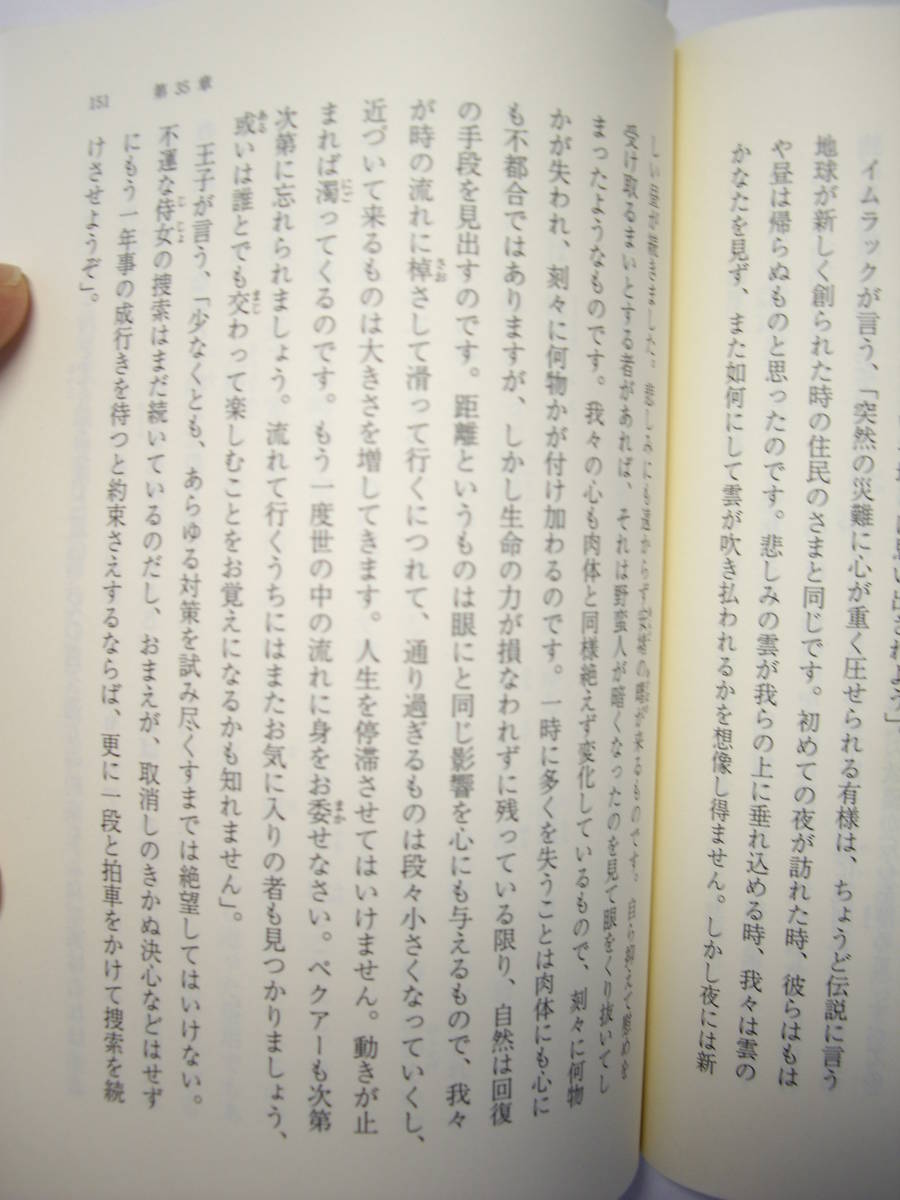 思い出されよう」
イムラックが言う、「突然の災難に心が重く圧せられる有様は、ちょうど伝説に言う
地球が新しく創られた時の住民のさまと同じです。初めての夜が訪れた時、彼らはもは
や昼は帰らぬものと思ったのです。悲しみの雲が我らの上に垂れ込める時、我々は雲の
かなたを見ず、また如何にして雲が吹き払われるかを想像し得ません。しかし夜には新
しい昼が続きました。悲しみにも遠からず安堵の暁が来るものです。自ら抑えて慰めを
受け取るまいとする者があれば、それは野蛮人が暗くなったのを見て眼をくり抜いてし
まったようなものです。我々の心も肉体と同様絶えず変化しているもので、刻々に何物
かが失われ、刻々に何物かが付け加わるのです。一時に多くを失うことは肉体にも心に
も不都合ではありますが、しかし生命の力が損なわれずに残っている限り、自然は回復
の手段を見出すのです。距離というものは眼にと同じ影響を心にも与えるもので、我々
が時の流れに棹さして滑って行くにつれて、通り過ぎるものは段々小さくなっていくし、
近づいて来るものは大きさを増してきます。人生を停滞させてはいけません。動きが止
まれば濁ってくるのです。もう一度世の中の流れに身をお委せなさい。ペクアーも次第
次第に忘れられましょう。流れて行くうちにはまたお気に入りの者も見つかりましょう、
或いは誰とでも交わって楽しむことをお覚えになるかも知れません」。
王子が言う、「少なくとも、あらゆる対策を試み尽くすまでは絶望してはいけない。
不運な侍女の捜索はまだ続いているのだし、おまえが、取消しのきかぬ決心などはせず
にもう一年事の成行きを待つと約束さえするならば、更に一段と拍車をかけて捜索を続
けさせようぞ」。
151 第35章